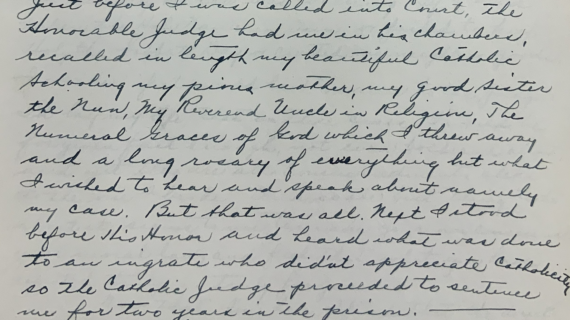 Just before I was called into Court, The
Honorable Judge had me in his chambers,
recalled in length my beautiful Catholic
Schooling my pious mother, my good Sister
the Nun, My Reverend Uncle in Religion, The
Numeral Graces of God which I threw away
and a long rosary of everything but what
I wished to hear and speak about namely
my case. But that was all. Next I stood
before His Honor and heard what was done
to an ingrate who didn't appreciate Catholicity
so The Catholic Judge proceeded to sentence
me for two years in the prison. —